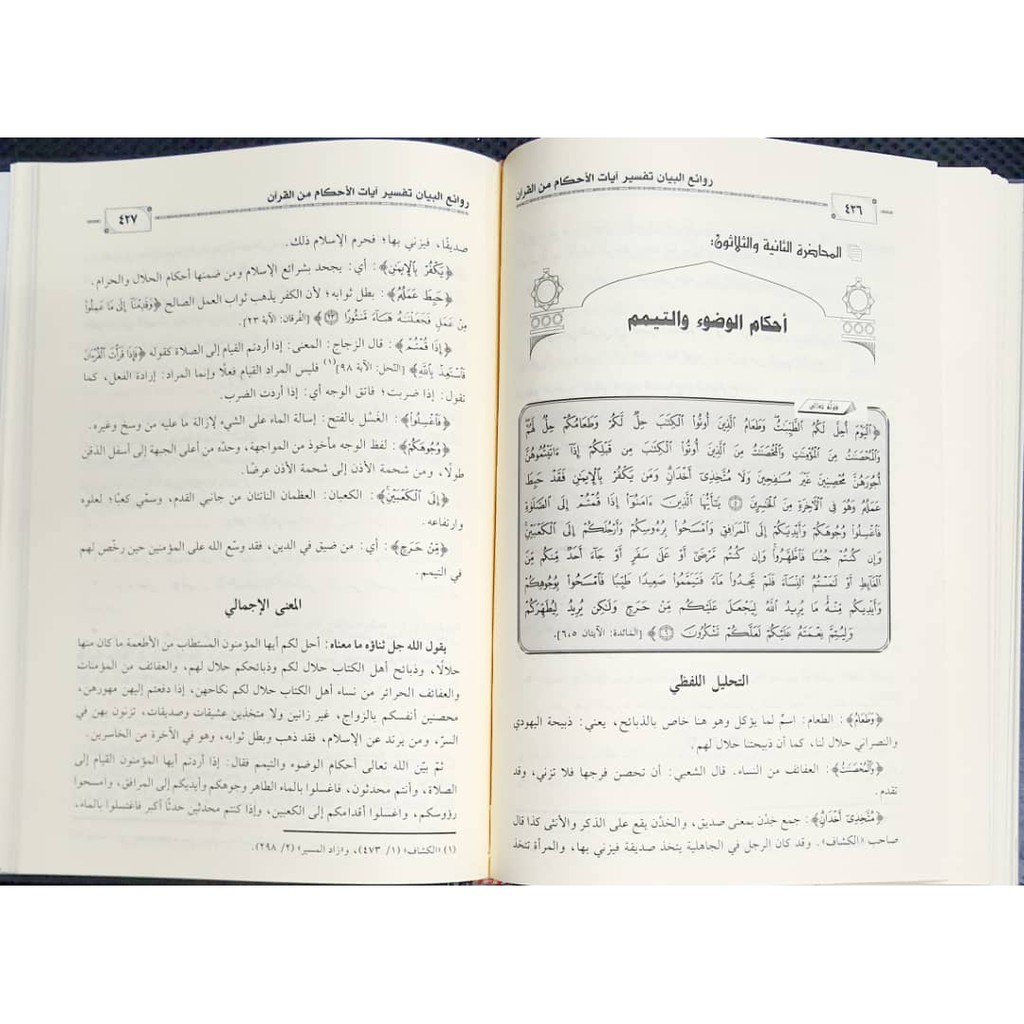 روائع البيان تفسير آيات الأحكام من القرآن
٤٢٦
المحاضرة الثانية والثلاثون:
أحكام الوضوء والتيمم
قوله تعالى
﴿ٱلۡيَوۡمَ أُحِلَّ لَكُمُ ٱلطَّيِّبَٰتُۖ وَطَعَامُ ٱلَّذِينَ أُوتُواْ ٱلۡكِتَٰبَ حِلّٞ لَّكُمۡ وَطَعَامُكُمۡ حِلّٞ لَّهُمۡۖ
وَٱلۡمُحۡصَنَٰتُ مِنَ ٱلۡمُؤۡمِنَٰتِ وَٱلۡمُحۡصَنَٰتُ مِنَ ٱلَّذِينَ أُوتُواْ ٱلۡكِتَٰبَ مِن قَبۡلِكُمۡ إِذَآ ءَاتَيۡتُمُوهُنَّ
أُجُورَهُنَّ مُحۡصِنِينَ غَيۡرَ مُسَٰفِحِينَ وَلَا مُتَّخِذِيٓ أَخۡدَانٖۗ وَمَن يَكۡفُرۡ بِٱلۡإِيمَٰنِ فَقَدۡ حَبِطَ
عَمَلُهُۥ وَهُوَ فِي ٱلۡأٓخِرَةِ مِنَ ٱلۡخَٰسِرِينَ ۝٥ يَٰٓأَيُّهَا ٱلَّذِينَ ءَامَنُوٓاْ إِذَا قُمۡتُمۡ إِلَى ٱلصَّلَوٰةِ
فَٱغۡسِلُواْ وُجُوهَكُمۡ وَأَيۡدِيَكُمۡ إِلَى ٱلۡمَرَافِقِ وَٱمۡسَحُواْ بِرُءُوسِكُمۡ وَأَرۡجُلَكُمۡ إِلَى ٱلۡكَعۡبَيۡنِۚ
وَإِن كُنتُمۡ جُنُبٗا فَٱطَّهَّرُواْۚ وَإِن كُنتُم مَّرۡضَىٰٓ أَوۡ عَلَىٰ سَفَرٍ أَوۡ جَآءَ أَحَدٞ مِّنكُم مِّنَ
ٱلۡغَآئِطِ أَوۡ لَٰمَسۡتُمُ ٱلنِّسَآءَ فَلَمۡ تَجِدُواْ مَآءٗ فَتَيَمَّمُواْ صَعِيدٗا طَيِّبٗا فَٱمۡسَحُواْ بِوُجُوهِكُمۡ
وَأَيۡدِيكُم مِّنۡهُۚ مَا يُرِيدُ ٱللَّهُ لِيَجۡعَلَ عَلَيۡكُم مِّنۡ حَرَجٖ وَلَٰكِن يُرِيدُ لِيُطَهِّرَكُمۡ
وَلِيُتِمَّ نِعۡمَتَهُۥ عَلَيۡكُمۡ لَعَلَّكُمۡ تَشۡكُرُونَ ۝٦﴾ [المائدة: الآيتان ٥،٦].
التحليل اللفظي
﴿وَطَعَامُ﴾: الطعام: اسمٌ لما يؤكل وهو هنا خاص بالذبائح، يعني: ذبيحة اليهودي
والنصراني حلال لنا، كما أن ذبيحتنا حلال لهم.
﴿وَٱلۡمُحۡصَنَٰتُ﴾: العفائف من النساء. قال الشعبي: أن تحصن فرجها فلا تزني، وقد
تقدم.
﴿مُتَّخِذِيٓ أَخۡدَانٖ﴾: جمع خِدْن بمعنى صديق، والخدْن يقع على الذكر والأنثى كذا قال
صاحب «الكشاف». وقد كان الرجل في الجاهلية يتخذ صديقة فيزني بها، والمرأة تتخذ
روائع البيان تفسير آيات الأحكام من القرآن
٤٢٧
صديقًا، فيزني بها؛ فحرم الإسلام ذلك.
﴿يَكۡفُرۡ بِٱلۡإِيمَٰنِ﴾: أي: يجحد بشرائع الإسلام ومن ضمنها أحكام الحلال والحرام.
﴿حَبِطَ عَمَلُهُۥ﴾: بطل ثوابه؛ لأن الكفر يذهب ثواب العمل الصالح ﴿وَقَدِمۡنَآ إِلَىٰ مَا عَمِلُواْ
مِنۡ عَمَلٖ فَجَعَلۡنَٰهُ هَبَآءٗ مَّنثُورًا ۝٢٣﴾ [الفرقان: الآية ٢٣].
﴿إِذَا قُمۡتُمۡ﴾: قال الزجاج: المعنى: إذا أردتم القيام إلى الصلاة كقوله ﴿فَإِذَا قَرَأۡتَ ٱلۡقُرۡءَانَ
فَٱسۡتَعِذۡ بِٱللَّهِ﴾ [النحل: الآية ٩٨](١) فليس المراد القيام فعلًا وإنما المراد: إرادة الفعل، كما
تقول: إذا ضربت؛ فاتق الوجه أي: إذا أردت الضرب.
﴿فَٱغۡسِلُواْ﴾: الغَسْل بالفتح: إسالة الماء على الشيء لإزالة ما عليه من وسخ وغيره.
﴿وُجُوهَكُمۡ﴾: لفظ الوجه مأخوذ من المواجهة، وحدّه من أعلى الجبهة إلى أسفل الذقن
طولًا، ومن شحمة الأذن إلى شحمة الأذن عرضًا.
﴿إِلَى ٱلۡكَعۡبَيۡنِۚ﴾: الكعبان: العظمان الناتئان من جانبي القدم، وسمّي كعبًا؛ لعلوه
وارتفاعه.
﴿مِّنۡ حَرَجٖ﴾: أي: من ضيق في الدين، فقد وسّع الله على المؤمنين حين رخّص لهم
في التيمم.
المعنى الإجمالي
يقول الله جل ثناؤه ما معناه: أحل لكم أيها المؤمنون المستطاب من الأطعمة ما كان منها
حلالًا، وذبائح أهل الكتاب حلال لكم وذبائحكم حلال لهم، والعفائف من المؤمنات
والعفائف الحرائر من نساء أهل الكتاب حلال لكم نكاحهن، إذا دفعتم إليهن مهورهن،
محصنين أنفسكم بالزواج، غير زانين ولا متخذين عشيقات وصديقات، تزنون بهن في
السرّ، ومن يرتد عن الإسلام، فقد ذهب وبطل ثوابه، وهو في الآخرة من الخاسرين.
ثمّ بيّن الله تعالى أحكام الوضوء والتيمم فقال: إذا أردتم أيها المؤمنون القيام إلى
الصلاة، وأنتم محدثون، فاغسلوا بالماء الطاهر وجوهكم وأيديكم إلى المرافق، وامسحوا
رؤوسكم، واغسلوا أقدامكم إلى الكعبين، وإذا كنتم محدثين حدثًا أكبر فاغتسلوا بالماء،
(١) «الكشاف» (١/ ٤٧٣)، و«زاد المسير» (٢/ ٢٩٨).